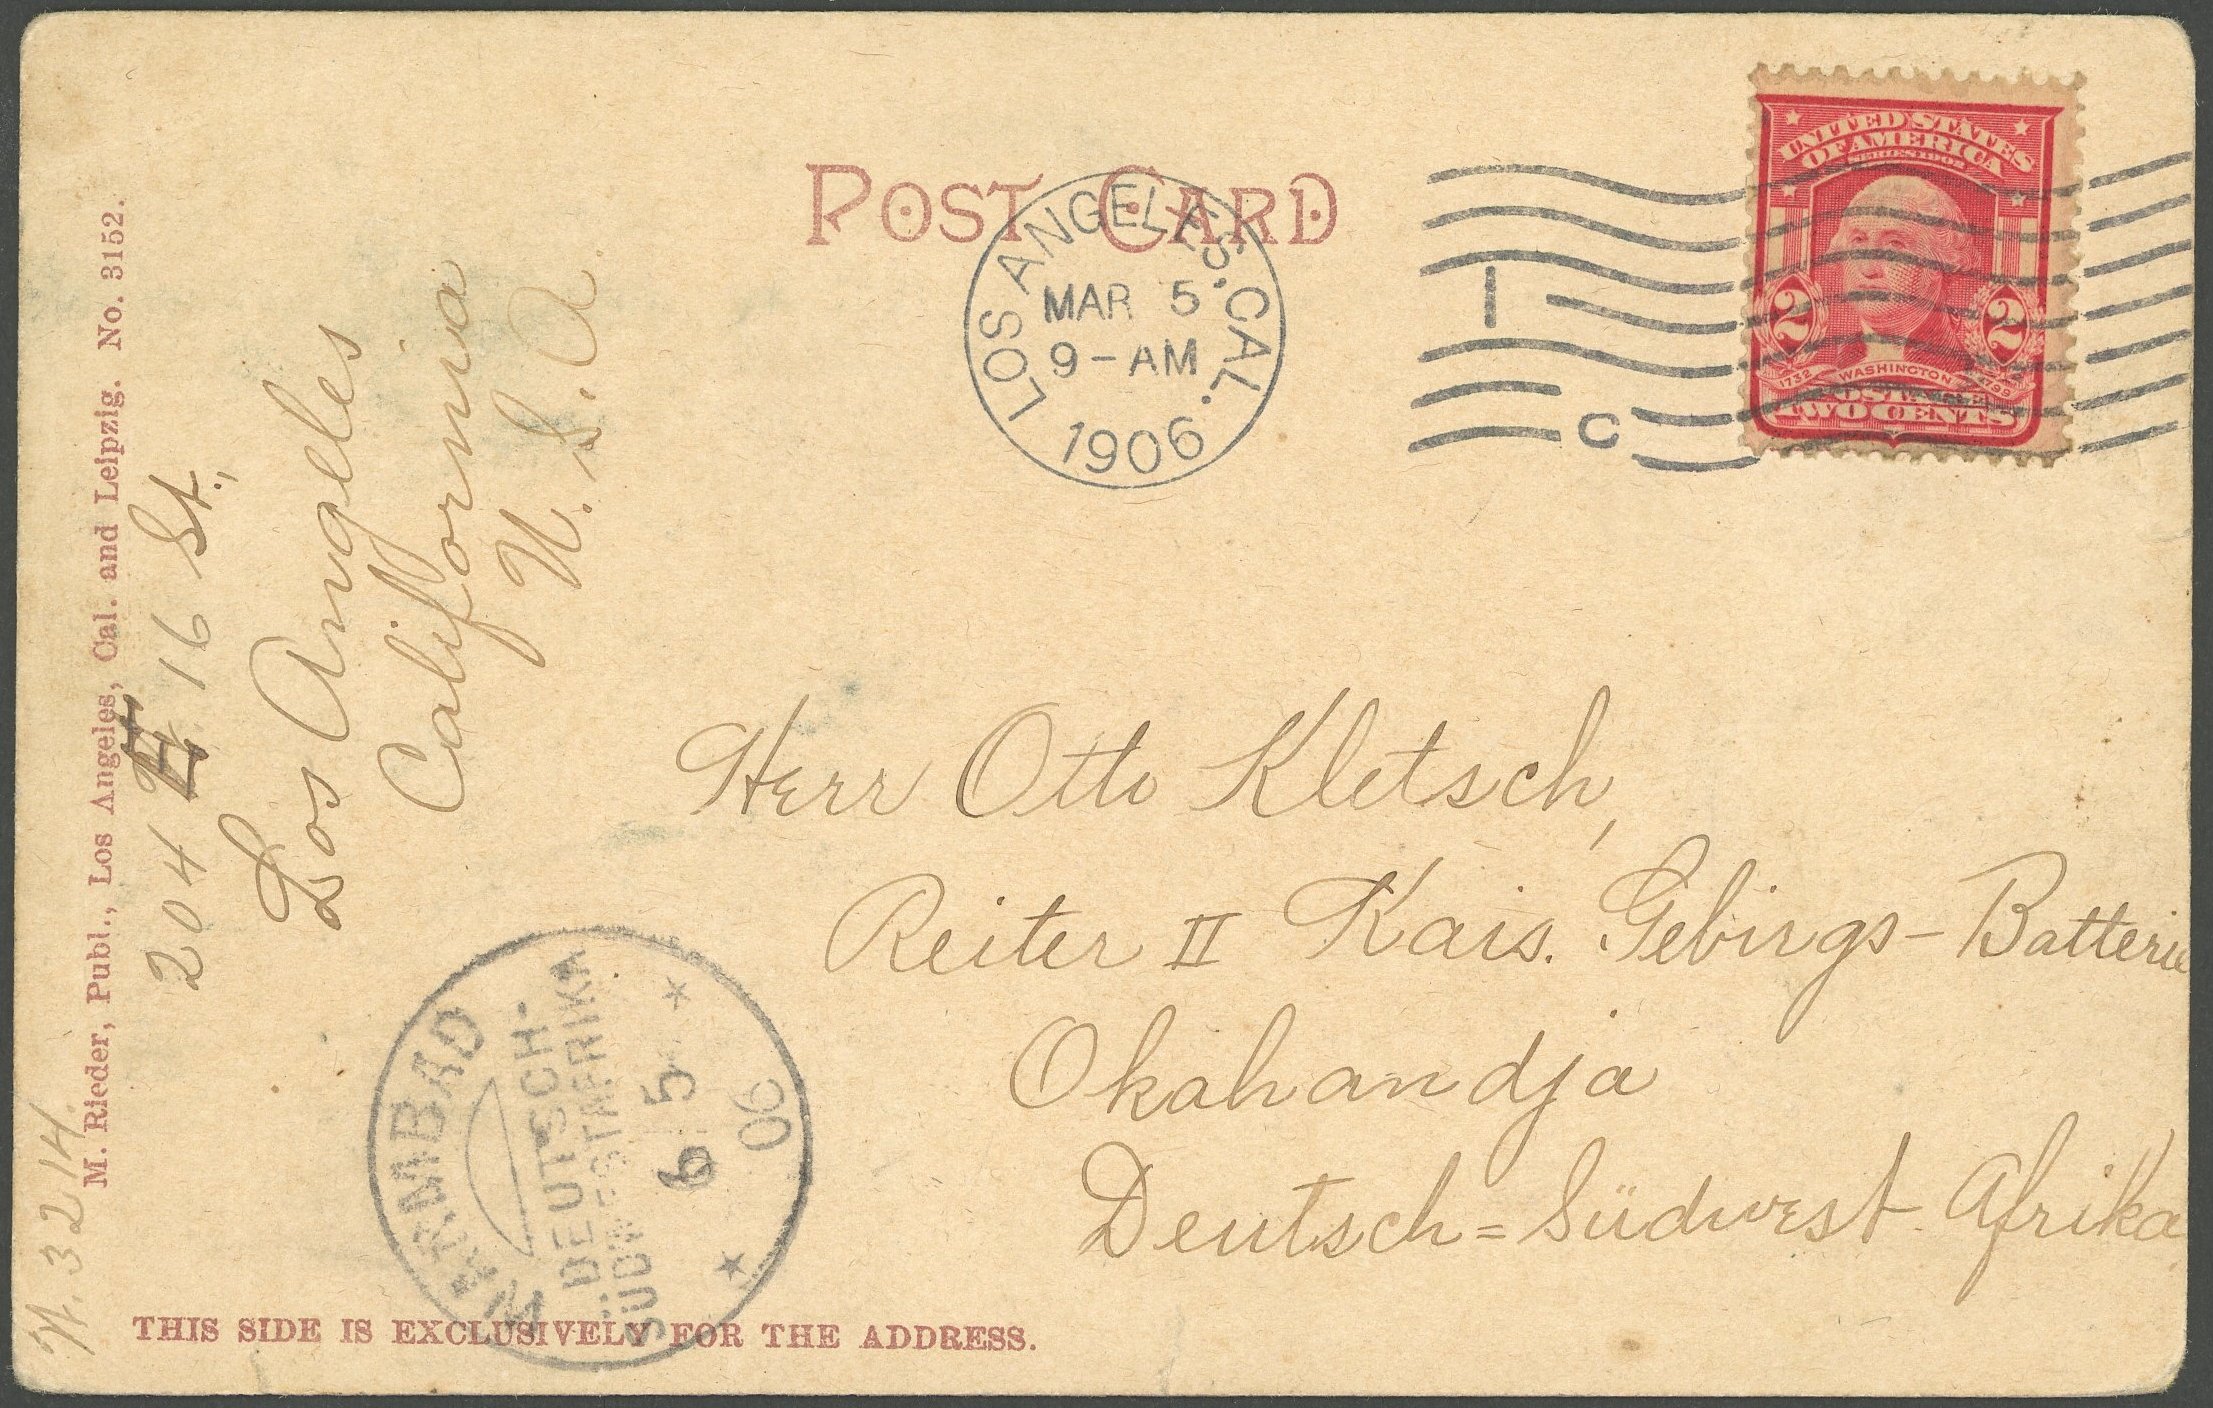 POST CARD
LOS ANGELES, CAL.
MAR 5
9-AM
1906
1
C
UNITED STATES
OF AMERICA
SERIES 1902
2 2
1732 WASHINGTON 1799
POSTAGE
TWO CENTS
M. Rieder, Publ., Los Angeles, Cal. and Leipzig. No. 3152.
204 E 16 St.,
Los Angeles
California
U.S.A.
Herr Otto Kletsch,
Reiter II Kais. Gebirgs-Batterie
Okahandja
Deutsch=Südwest Afrika
WARMBAD
DEUTSCH-
SÜDWESTAFRIKA
6 5
06
N. 3214.
THIS SIDE IS EXCLUSIVELY FOR THE ADDRESS.